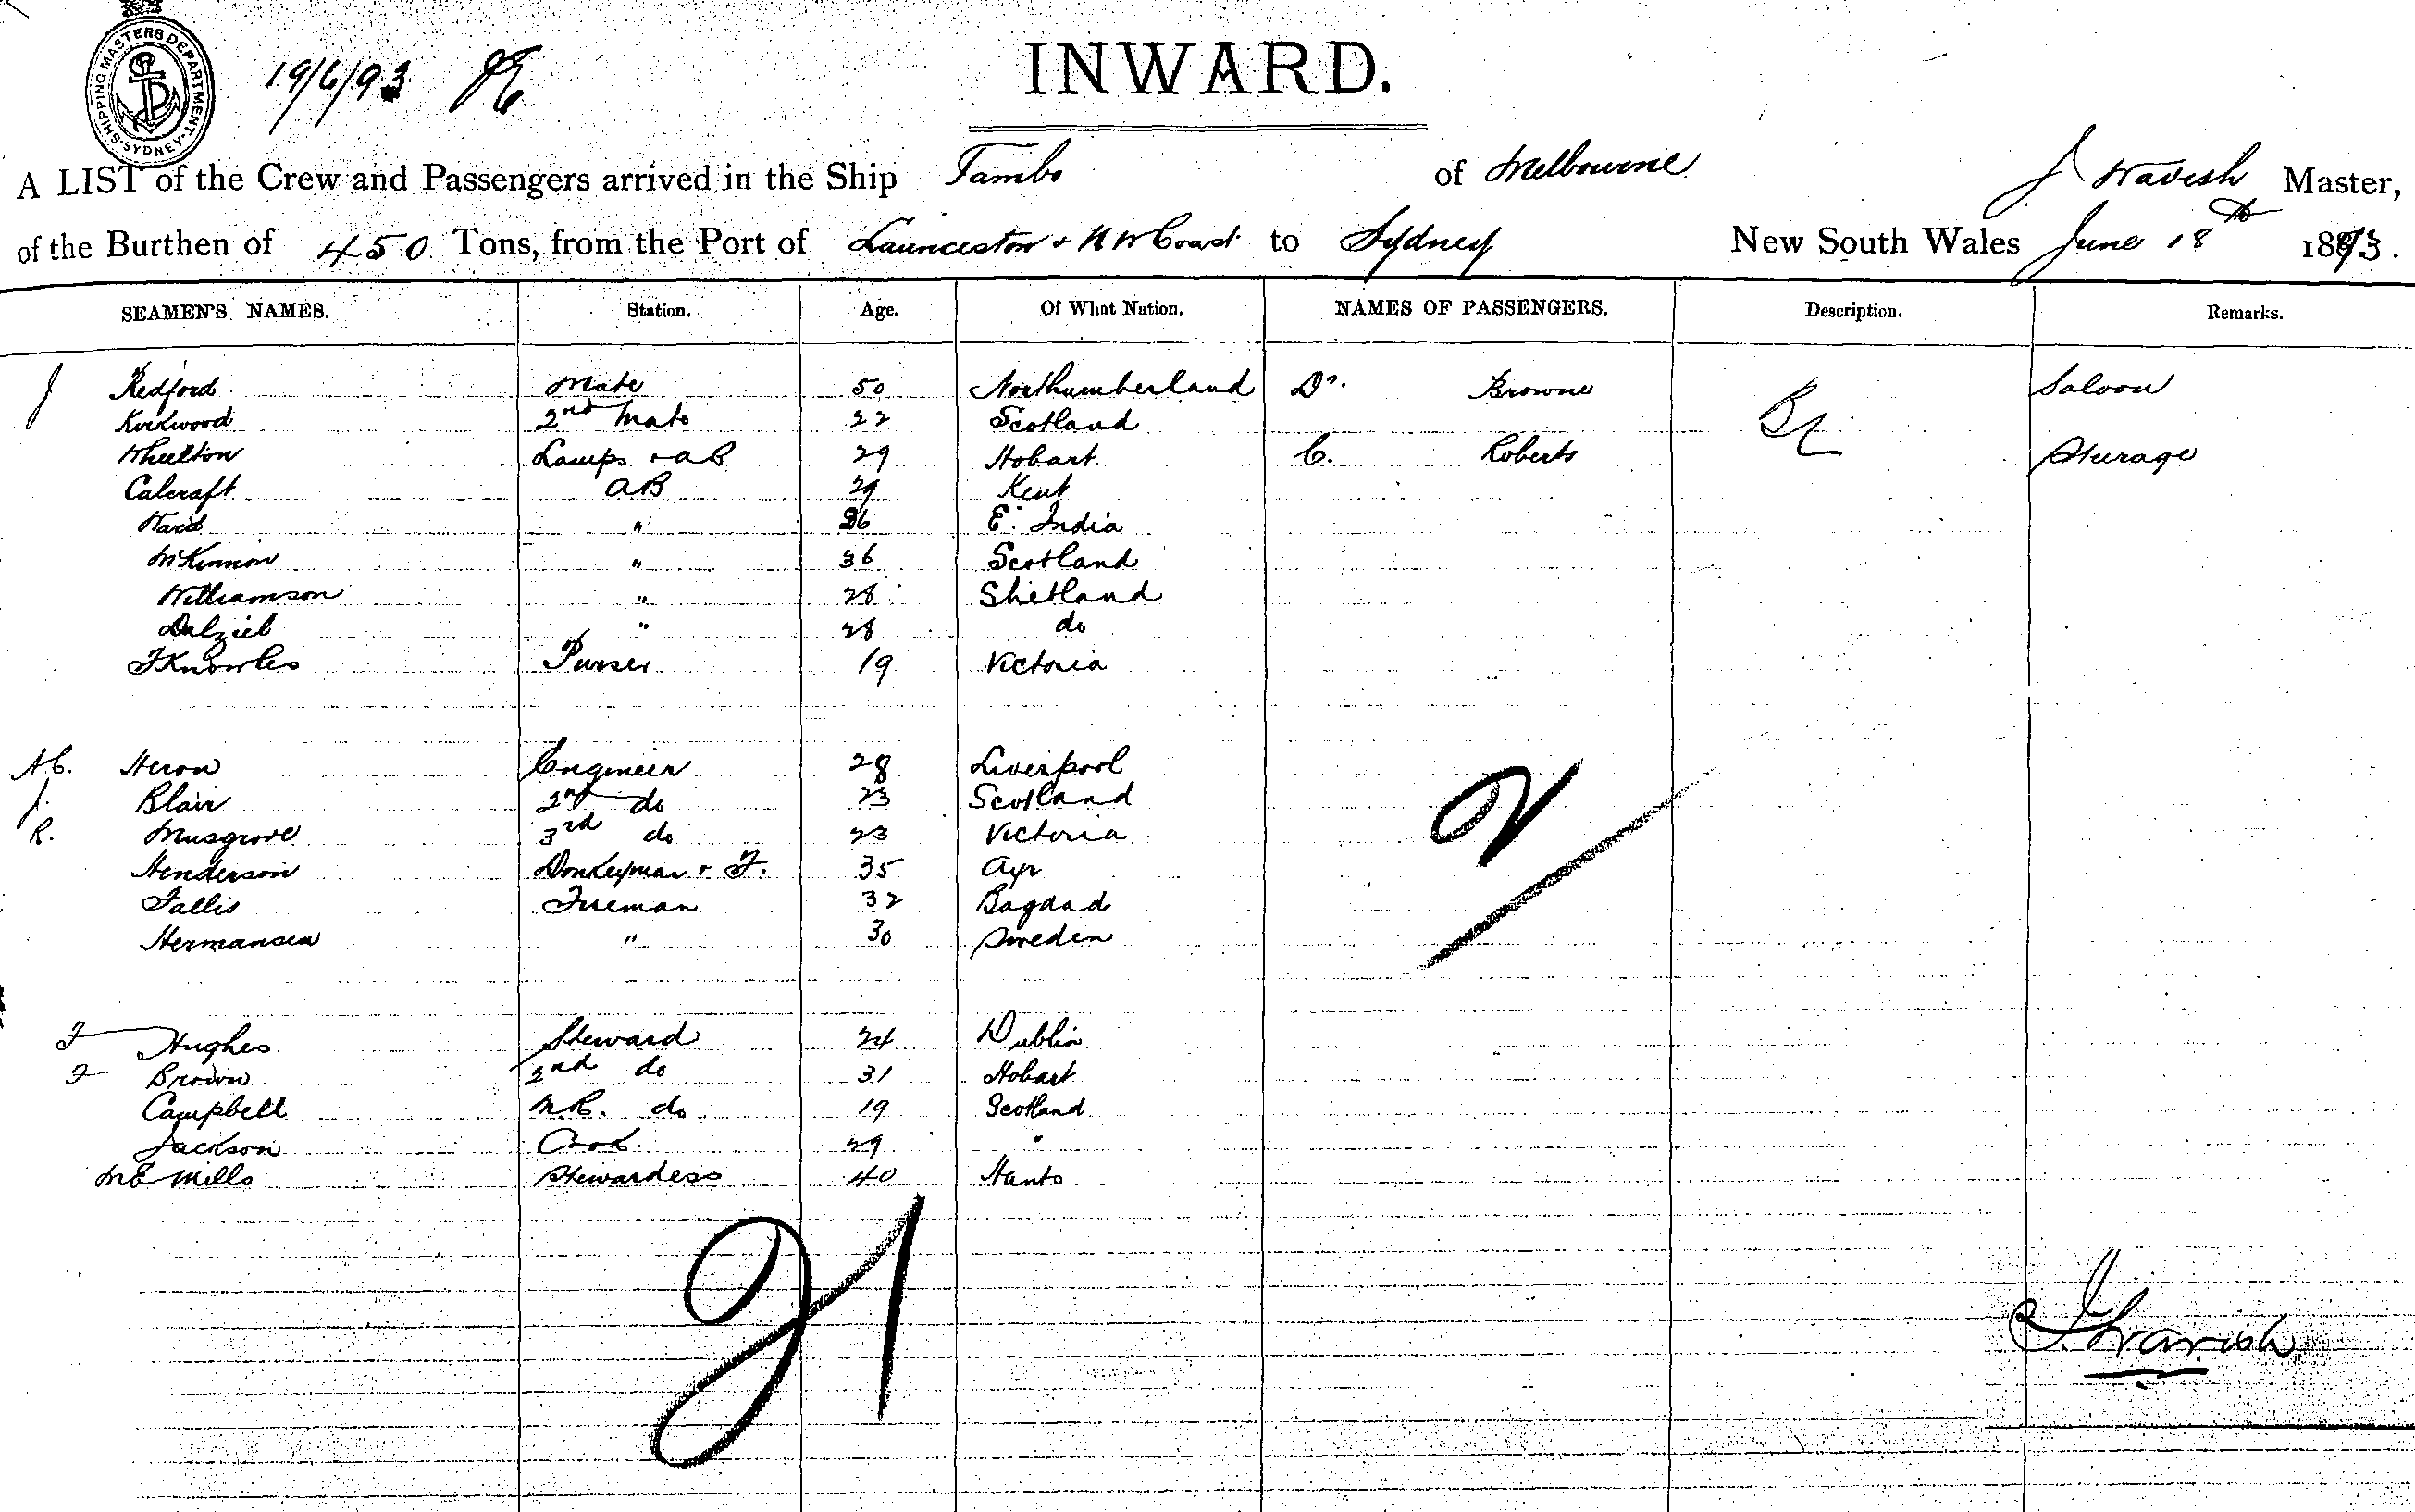 SHIPPING MASTERS DEPARTMENT SYDNEY
19/6/93
INWARD.
A LIST of the Crew and Passengers arrived in the Ship Tambo of Melbourne J Wavish Master,
of the Burthen of 450 Tons, from the Port of Launceston & N W Coast to Sydney New South Wales June 18th 1893.
SEAMEN'S NAMES. Station. Age. Of What Nation. NAMES OF PASSENGERS. Description. Remarks.
J Redford Mate 50 Northumberland Dr. Browne Saloon
Kirkwood 2nd Mate 22 Scotland
Wheelton Lamps & AB 29 Hobart C. Roberts Steerage
Calcraft AB 29 Kent
Ward " 26 E. India
McKinnon " 36 Scotland
Williamson " 28 Shetland
Dalziel " 28 do
F Knowles Purser 19 Victoria
A.C. Heron Engineer 28 Liverpool
J. Blair 2nd do 23 Scotland
R. Musgrove 3rd do 23 Victoria
Henderson Donkeyman & F. 35 Ayr
Fallis Fireman 32 Bagdad
Hermansen " 30 Sweden
F Hughes Steward 24 Dublin
F Brown 2nd do 31 Hobart
Campbell M.R. do 19 Scotland
Jackson Cook 29 "
M E Mills Stewardess 40 Hants
2
21
J. Wavish